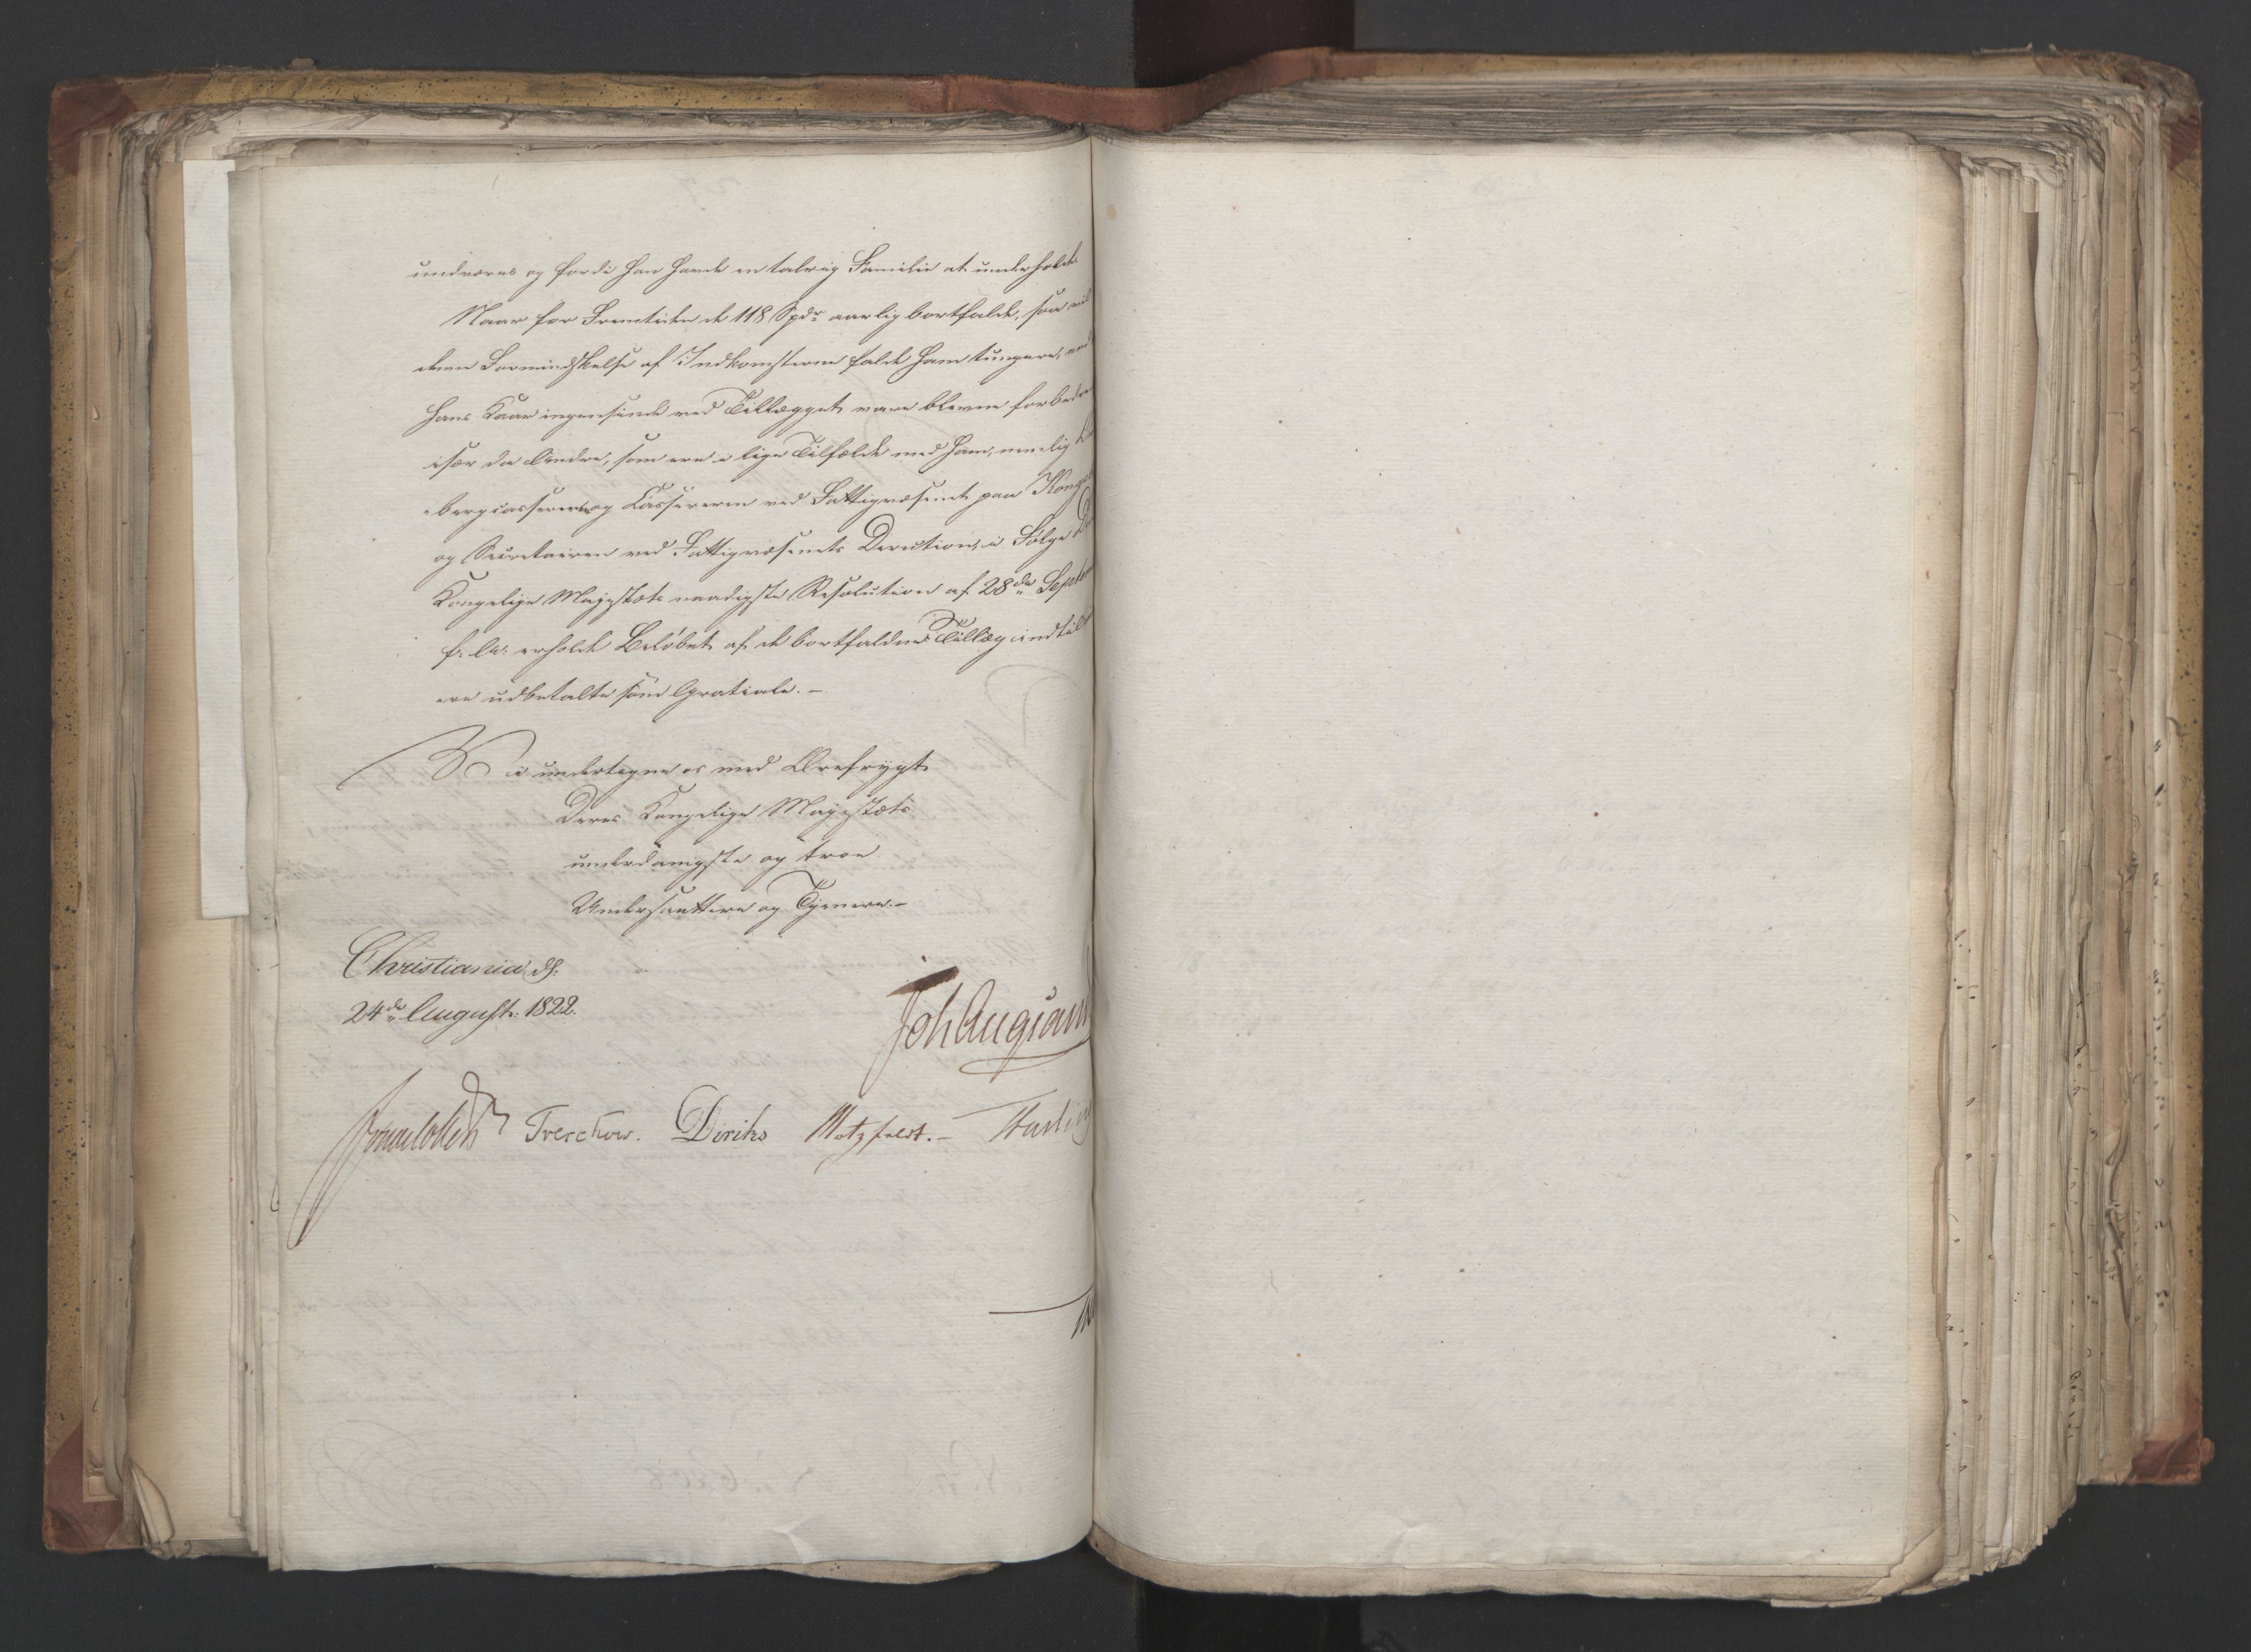 undværes og fordi han havde en talrig Familie at underholde
Naar for Fremtiden de 118 Spdr aarlig bortfalde, saa vil
denne Formindskelse af Indkomsterne falde ham tungere, end
hans Kaar ingensinde ved Tillægget vare blevne forbedre
især da Andre, som ere i lige Tilfælde med ham, nemlig
og Cassereren ved Fattigvæsenet paa Kongs
og Secretairen ved Fattigvæsenets Direction, i Følge
Kongelige Majestæts naadigste Resolution af 28de Septem
f. A. erholde Beløbet af de bortfaldne Tillæg indtil
ere udbetalte som Gratiale.-
Vi undertegne os med Ærefrygt
Deres Kongelige Majestæts
underdanigste og troe
Undersaatter og Tjenere.-
Christiania d:
24de August 1822.
Joh Aug Sand
Treschow. Diriks Motzfeldt.-